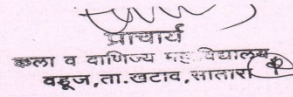 प्राचार्य
कला व वाणिज्य महाविद्यालय
वडूज,ता.खटाव,सातारा